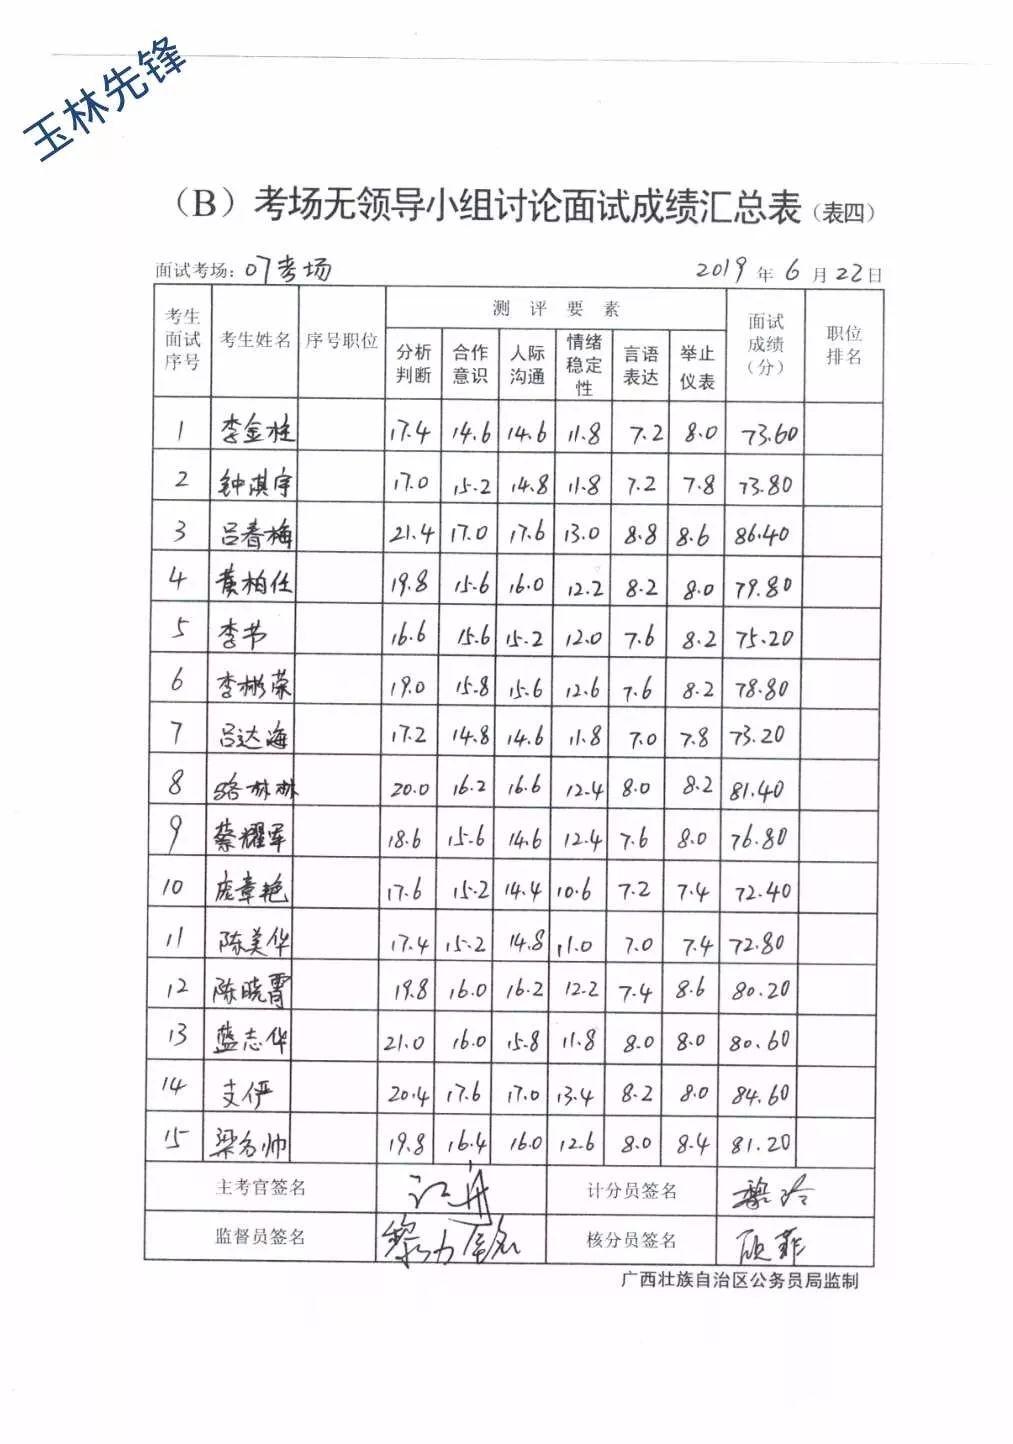 玉林先锋
（B）考场无领导小组讨论面试成绩汇总表（表四）
面试考场：07考场 2019年6月22日
考生面试序号 考生姓名 序号职位 测评要素 面试成绩（分） 职位排名
分析判断 合作意识 人际沟通 情绪稳定性 言语表达 举止仪表
1 李金柱 17.4 14.6 14.6 11.8 7.2 8.0 73.60
2 钟淇宇 17.0 15.2 14.8 11.8 7.2 7.8 73.80
3 吕春梅 21.4 17.0 17.6 13.0 8.8 8.6 86.40
4 黄柏任 19.8 15.6 16.0 12.2 8.2 8.0 79.80
5 李书 16.6 15.6 15.2 12.0 7.6 8.2 75.20
6 李彬荣 19.0 15.8 15.6 12.6 7.6 8.2 78.80
7 吕达海 17.2 14.8 14.6 11.8 7.0 7.8 73.20
8 骆林林 20.0 16.2 16.6 12.4 8.0 8.2 81.40
9 蔡耀军 18.6 15.6 14.6 12.4 7.6 8.0 76.80
10 庞章艳 17.6 15.2 14.4 10.6 7.2 7.4 72.40
11 陈美华 17.4 15.2 14.8 11.0 7.0 7.4 72.80
12 陈晓霄 19.8 16.0 16.2 12.2 7.4 8.6 80.20
13 蓝志华 21.0 16.0 15.8 11.8 8.0 8.0 80.60
14 支俨 20.4 17.6 17.0 13.4 8.2 8.0 84.60
15 梁名帅 19.8 16.4 16.0 12.6 8.0 8.4 81.20
主考官签名 计分员签名
监督员签名 核分员签名
广西壮族自治区公务员局监制